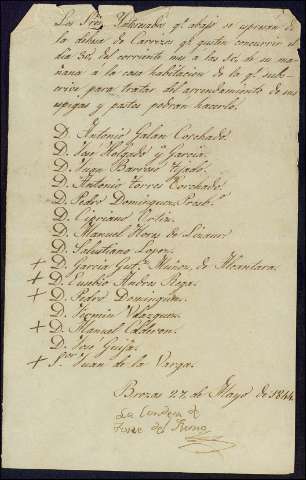 Los Sres. Ynteresados q.e abajo se espresan de
la dehesa de Carrizo q.e gusten concurrir el
dia 30, del corriente mes a las 10, de su ma-
ñana a la casa habitacion de la q.e subs-
crive para tratar del arrendamiento de sus
espigas y pastos podran hacerlo.
D. Antonio Galan Corchado.
D. Jose Holgado y Garcia.
D. Juan Barrios Tejado.
D. Antonio Torres Corchado.
D. Pedro Dominguez Presb.o
D. Cipriano
D. Manuel Flores de Lizaur.
D. Salustiano Lopez.
+ D. Garcia Gut.z Muñoz, de Alcantara.
+ D. Eusebio Andres Rega.
+ D. Pedro Dominguez.
D. Fermin Velazquez.
+ D. Manuel Calderon.
D. Jose
+ Por Juan de la Varga.
Brozas 27, de Mayo de 1844
La Condesa de
Torre del Fresno